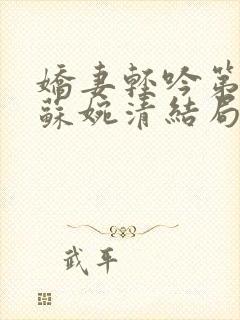 嬌妻輕吟第
蘇婉清結局
武平